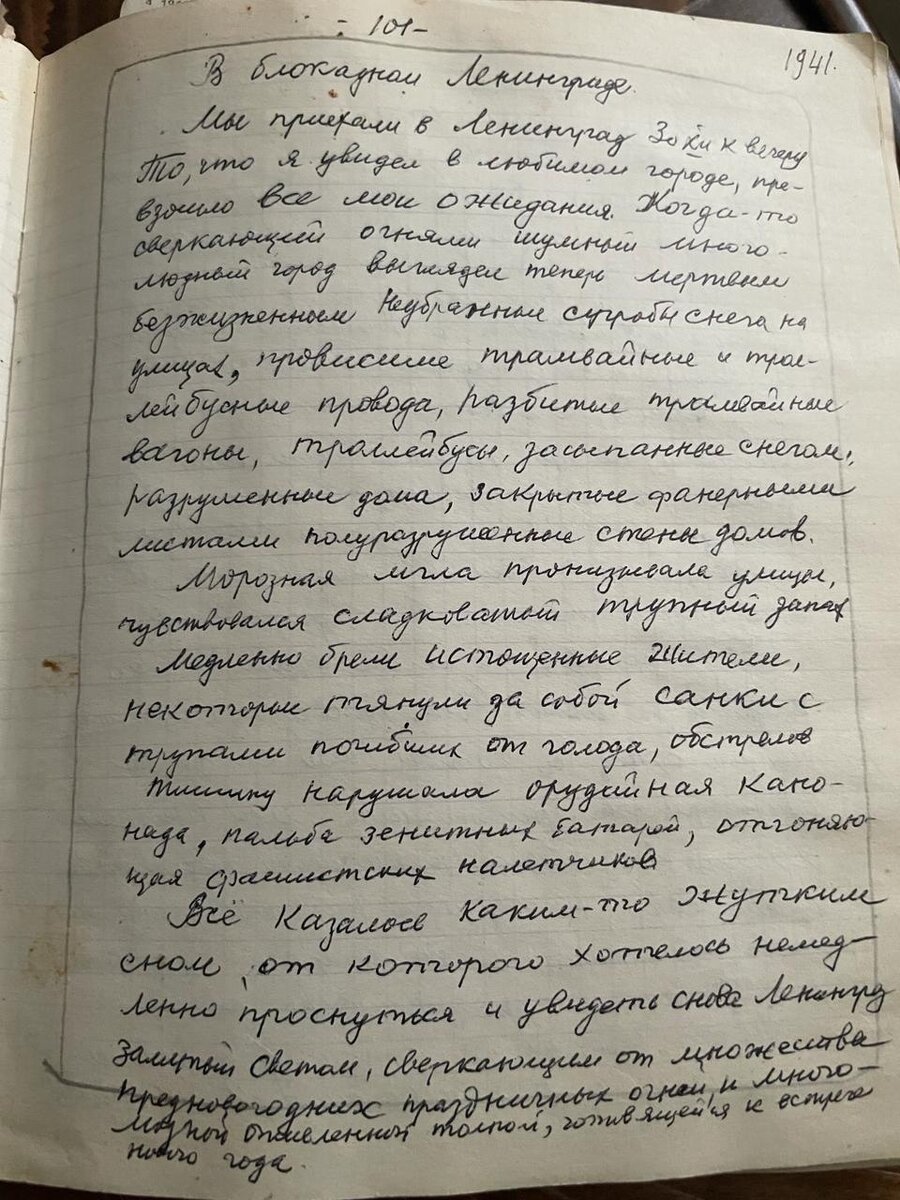 - 101-
1941.
В блокадном Ленинграде.
Мы приехали в Ленинград 30 XII к вечеру
То, что я увидел в любимом городе, пре-
взошло все мои ожидания. Когда-то
сверкающий огнями шумный много-
людный город выглядел теперь мертвым
безжизненным Неубранные сугробы снега на
улицах, провисшие трамвайные и трол-
лейбусные провода, разбитые трамвайные
вагоны, троллейбусы, засыпанные снегом,
разрушенные дома, закрытые фанерными
листами полуразрушенные стены домов.
Морозная мгла пронизывала улицы,
чувствовался сладковатый трупный запах
Медленно брели истощенные жители,
некоторые тянули за собой санки с
трупами погибших от голода, обстрелов
Тишину нарушала орудийная кано-
нада, пальба зенитных батарей, отгоняю-
щая фашистских налетчиков
Всё казалось каким-то жутким
сном, от которого хотелось немед-
ленно проснуться и увидеть снова Ленинград
залитый светом, сверкающим от множества
предновогодних праздничных огней, и много-
людной оживленной толпой, готовящейся к встрече
нового года.